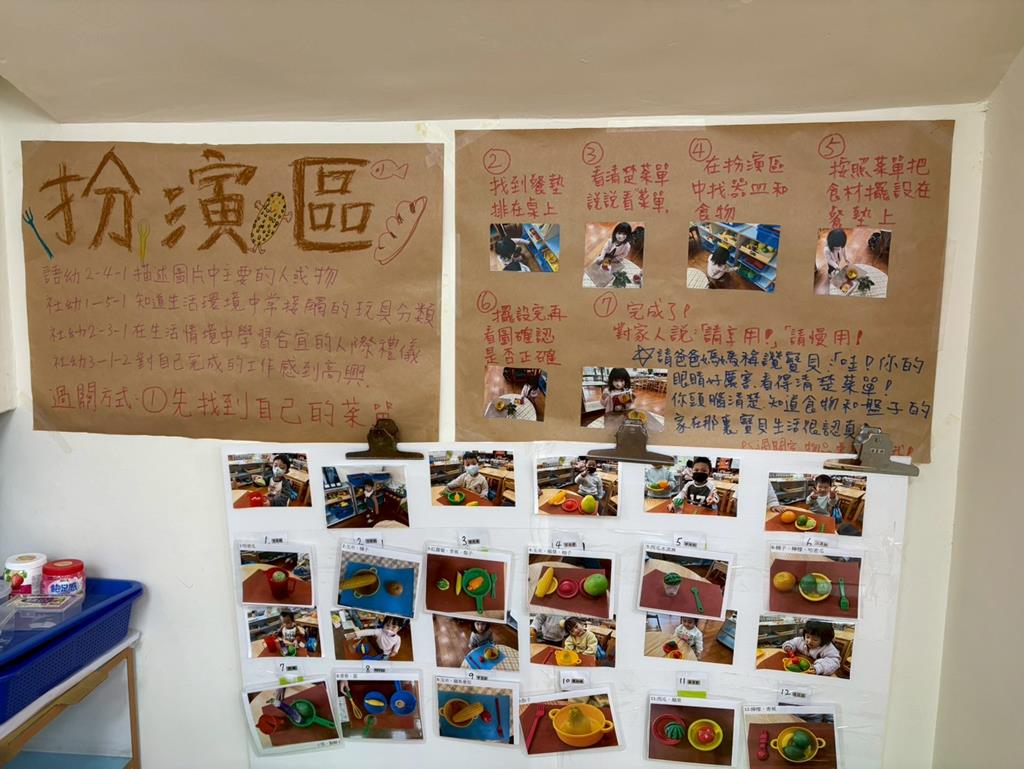 扮演區
語幼2-4-1描述圖片中主要的人或物
社幼1-5-1知道生活環境中常接觸的玩具分類
社幼2-3-1在生活情境中學習合宜的人際禮儀
社幼3-1-2對自己完成的工作感到高興.
過關方式:①先找到自己的菜單
②
找到餐墊
排在桌上
③
看清楚菜單
說說看菜單.
④
在扮演區
中找器皿和
食物
⑤
按照菜單把
食材擺設在
餐墊上
⑥
擺設完再
看圖確認
是否正確
⑦完成了!
對家人說:「請享用!」「請慢用!
請爸爸媽媽稱讚寶貝:「哇!你的
眼睛好厲害.看得清楚菜單!
你頭腦清楚.知道食物和盤子的
家在那裏寶貝生活很認真!
1
2
3
4
5
6
7
8
9
10
11
12